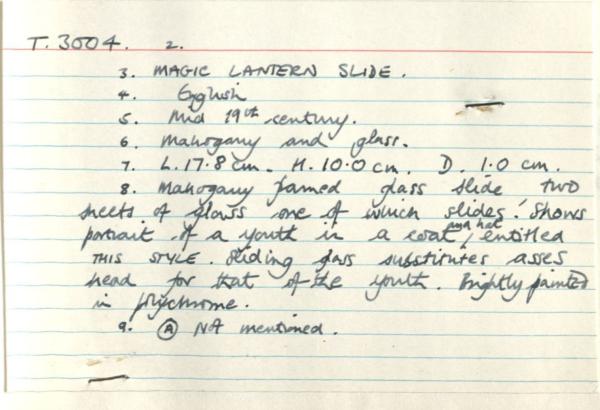 T.3004. 2.
3. MAGIC LANTERN SLIDE.
4. English
5. Mid 19th century.
6. Mahogany and glass.
7. L.17.8cm. H.10.0cm. D. 1.0 cm.
8. Mahogany framed glass slide two
sheets of glass one of which slides. Shows
portrait of a youth in a coat and hat, entitled
THIS STYLE. Sliding glass substitutes asses
head for that of the youth. Brightly painted
in polychrome.
9. A Not mentioned.